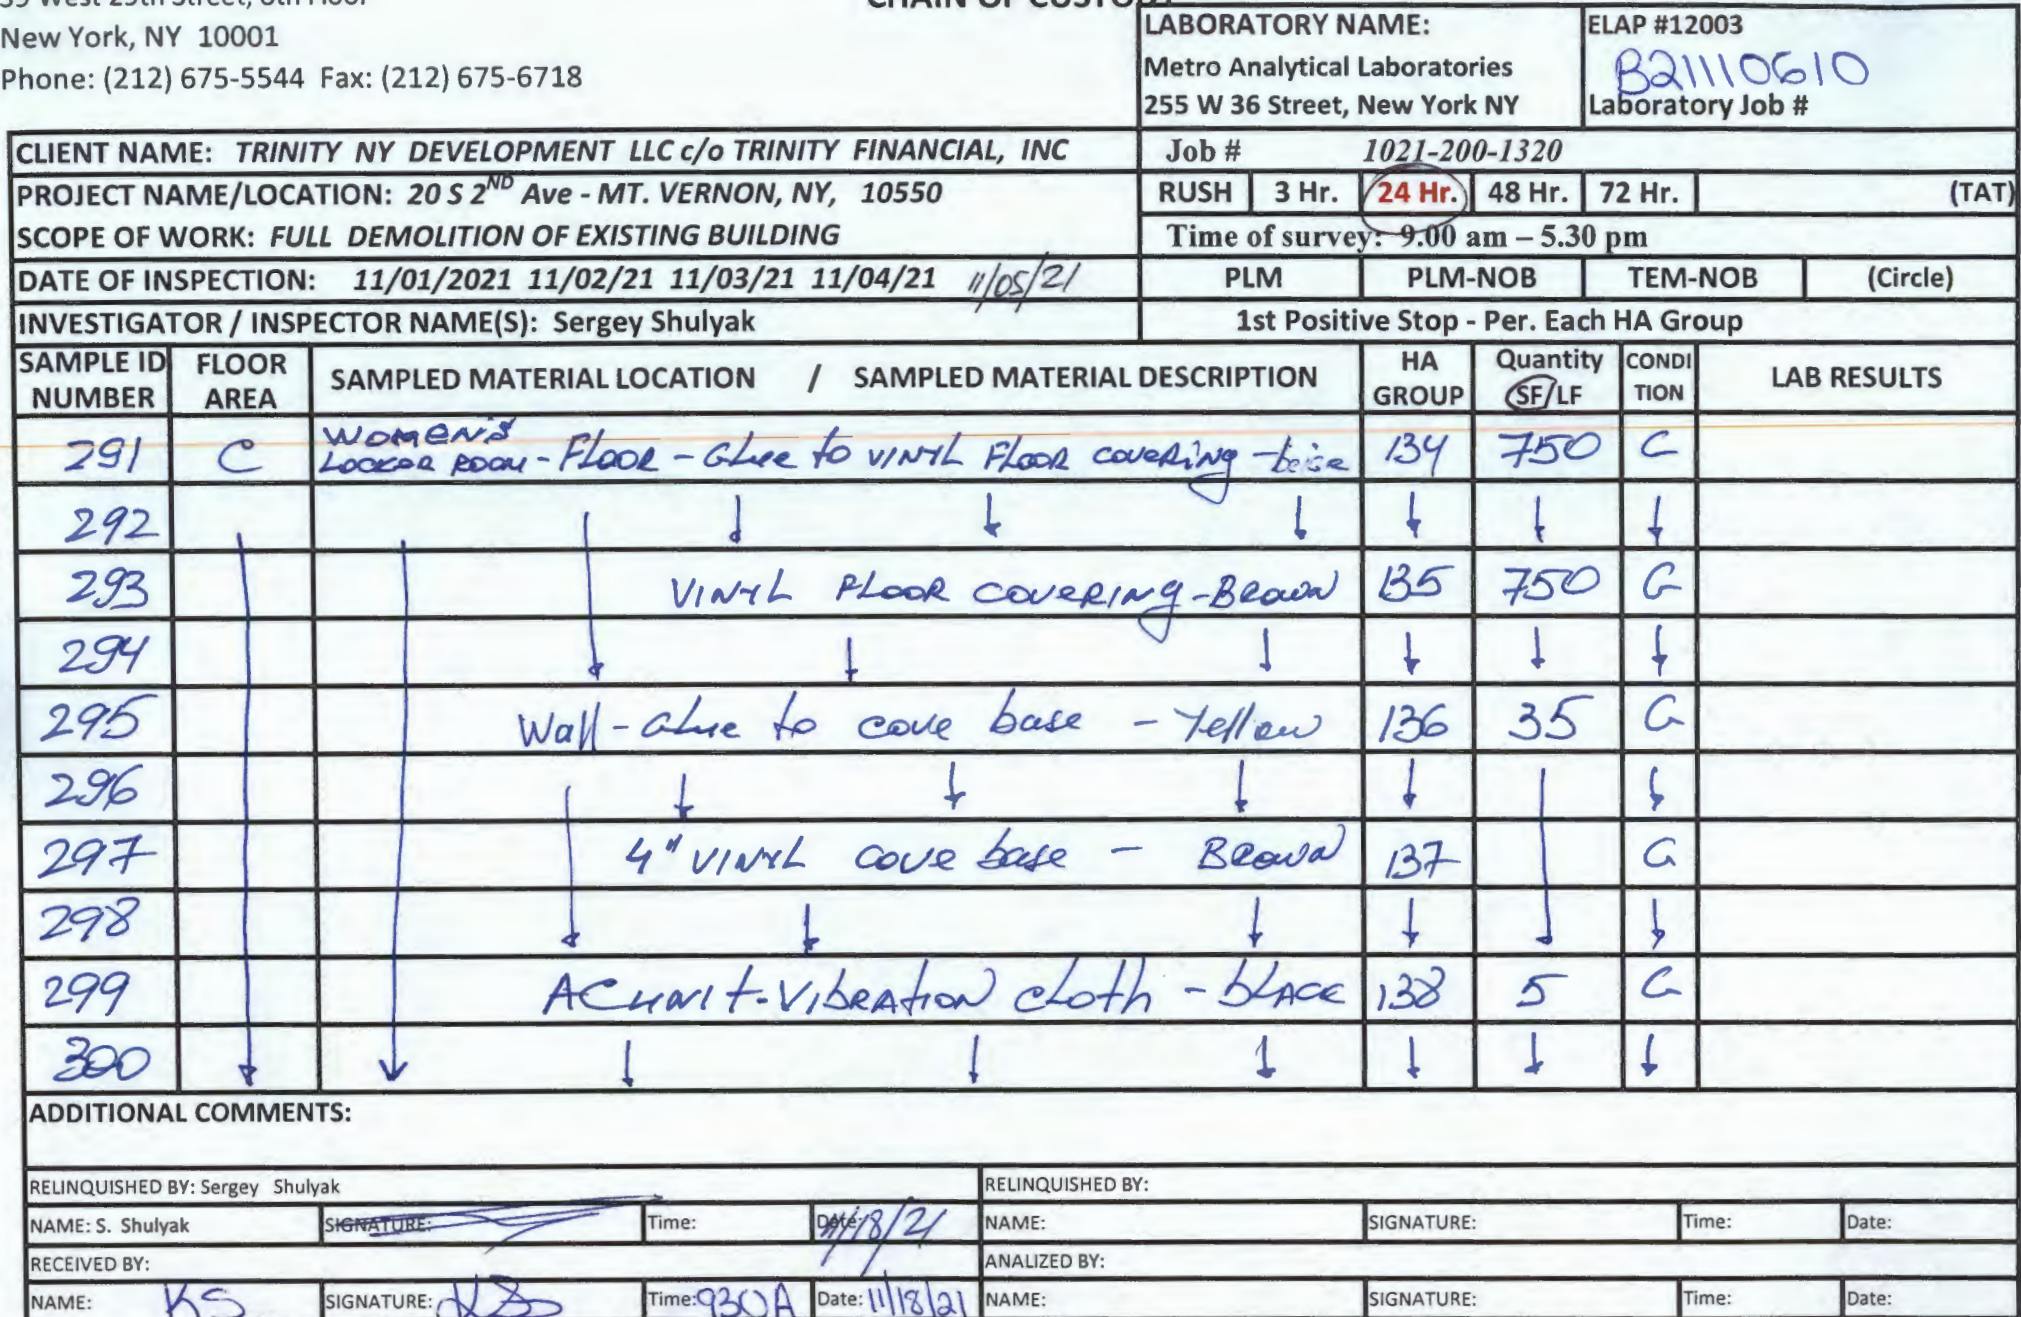 New York, NY 10001
Phone: (212) 675-5544 Fax: (212) 675-6718
LABORATORY NAME:
Metro Analytical Laboratories
255 W 36 Street, New York NY
ELAP #12003
B21110610
Laboratory Job #
CLIENT NAME: TRINITY NY DEVELOPMENT LLC c/o TRINITY FINANCIAL, INC
Job # 1021-200-1320
PROJECT NAME/LOCATION: 20 S 2ND Ave - MT. VERNON, NY, 10550
RUSH 3 Hr. 24 Hr. 48 Hr. 72 Hr. (TAT)
SCOPE OF WORK: FULL DEMOLITION OF EXISTING BUILDING
Time of survey: 9.00 am – 5.30 pm
DATE OF INSPECTION: 11/01/2021 11/02/21 11/03/21 11/04/21 11/05/21
PLM PLM-NOB TEM-NOB (Circle)
INVESTIGATOR / INSPECTOR NAME(S): Sergey Shulyak
1st Positive Stop - Per. Each HA Group
SAMPLE ID NUMBER FLOOR AREA SAMPLED MATERIAL LOCATION / SAMPLED MATERIAL DESCRIPTION HA GROUP Quantity SF/LF CONDI TION LAB RESULTS
291 C WOMEN'S LOCKOR ROOM - FLOOR - GLUE to VINYL FLOOR COVERING - beige 134 750 G
292
293 VINYL FLOOR COVERING - BROWN 135 750 G
294
295 Wall - Glue to cove base - Yellow 136 35 G
296
297 4" VINYL cove base - BROWN 137 G
298
299 AC UNIT - VIBRATION CLOTH - BLACK 138 5 G
300
ADDITIONAL COMMENTS:
RELINQUISHED BY: Sergey Shulyak RELINQUISHED BY:
NAME: S. Shulyak SIGNATURE: Time: Date: 11/18/21 NAME: SIGNATURE: Time: Date:
RECEIVED BY: ANALIZED BY:
NAME: KS SIGNATURE: KS Time: 930A Date: 11/18/21 NAME: SIGNATURE: Time: Date: